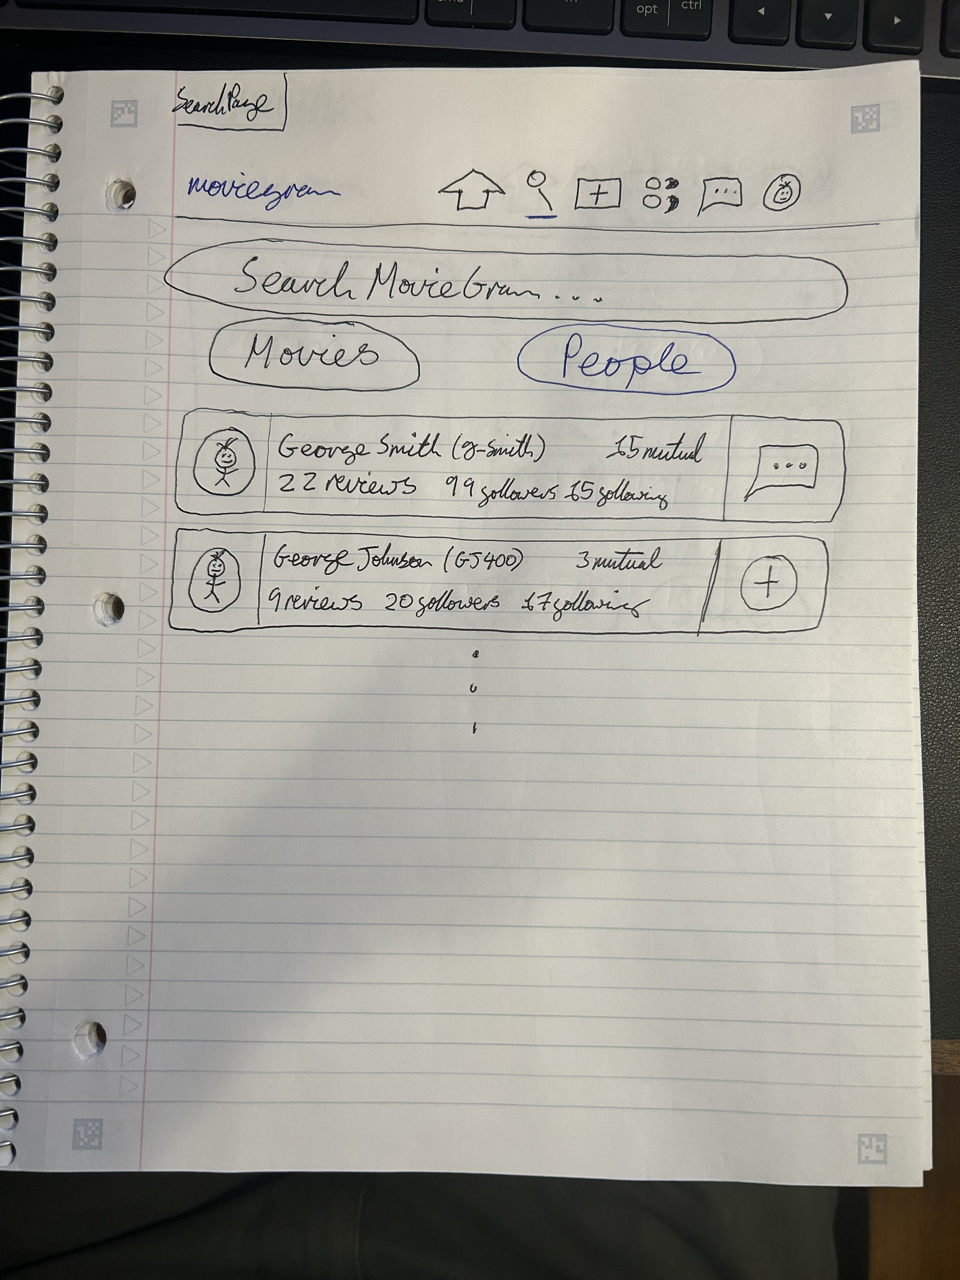 opt ctrl
SearchPage
moviegram
Search MovieGram...
Movies
People
George Smith (g-smith) 15 mutual
22 reviews 99 followers 15 following
George Johnson (GJ400) 3 mutual
9 reviews 20 followers 17 following